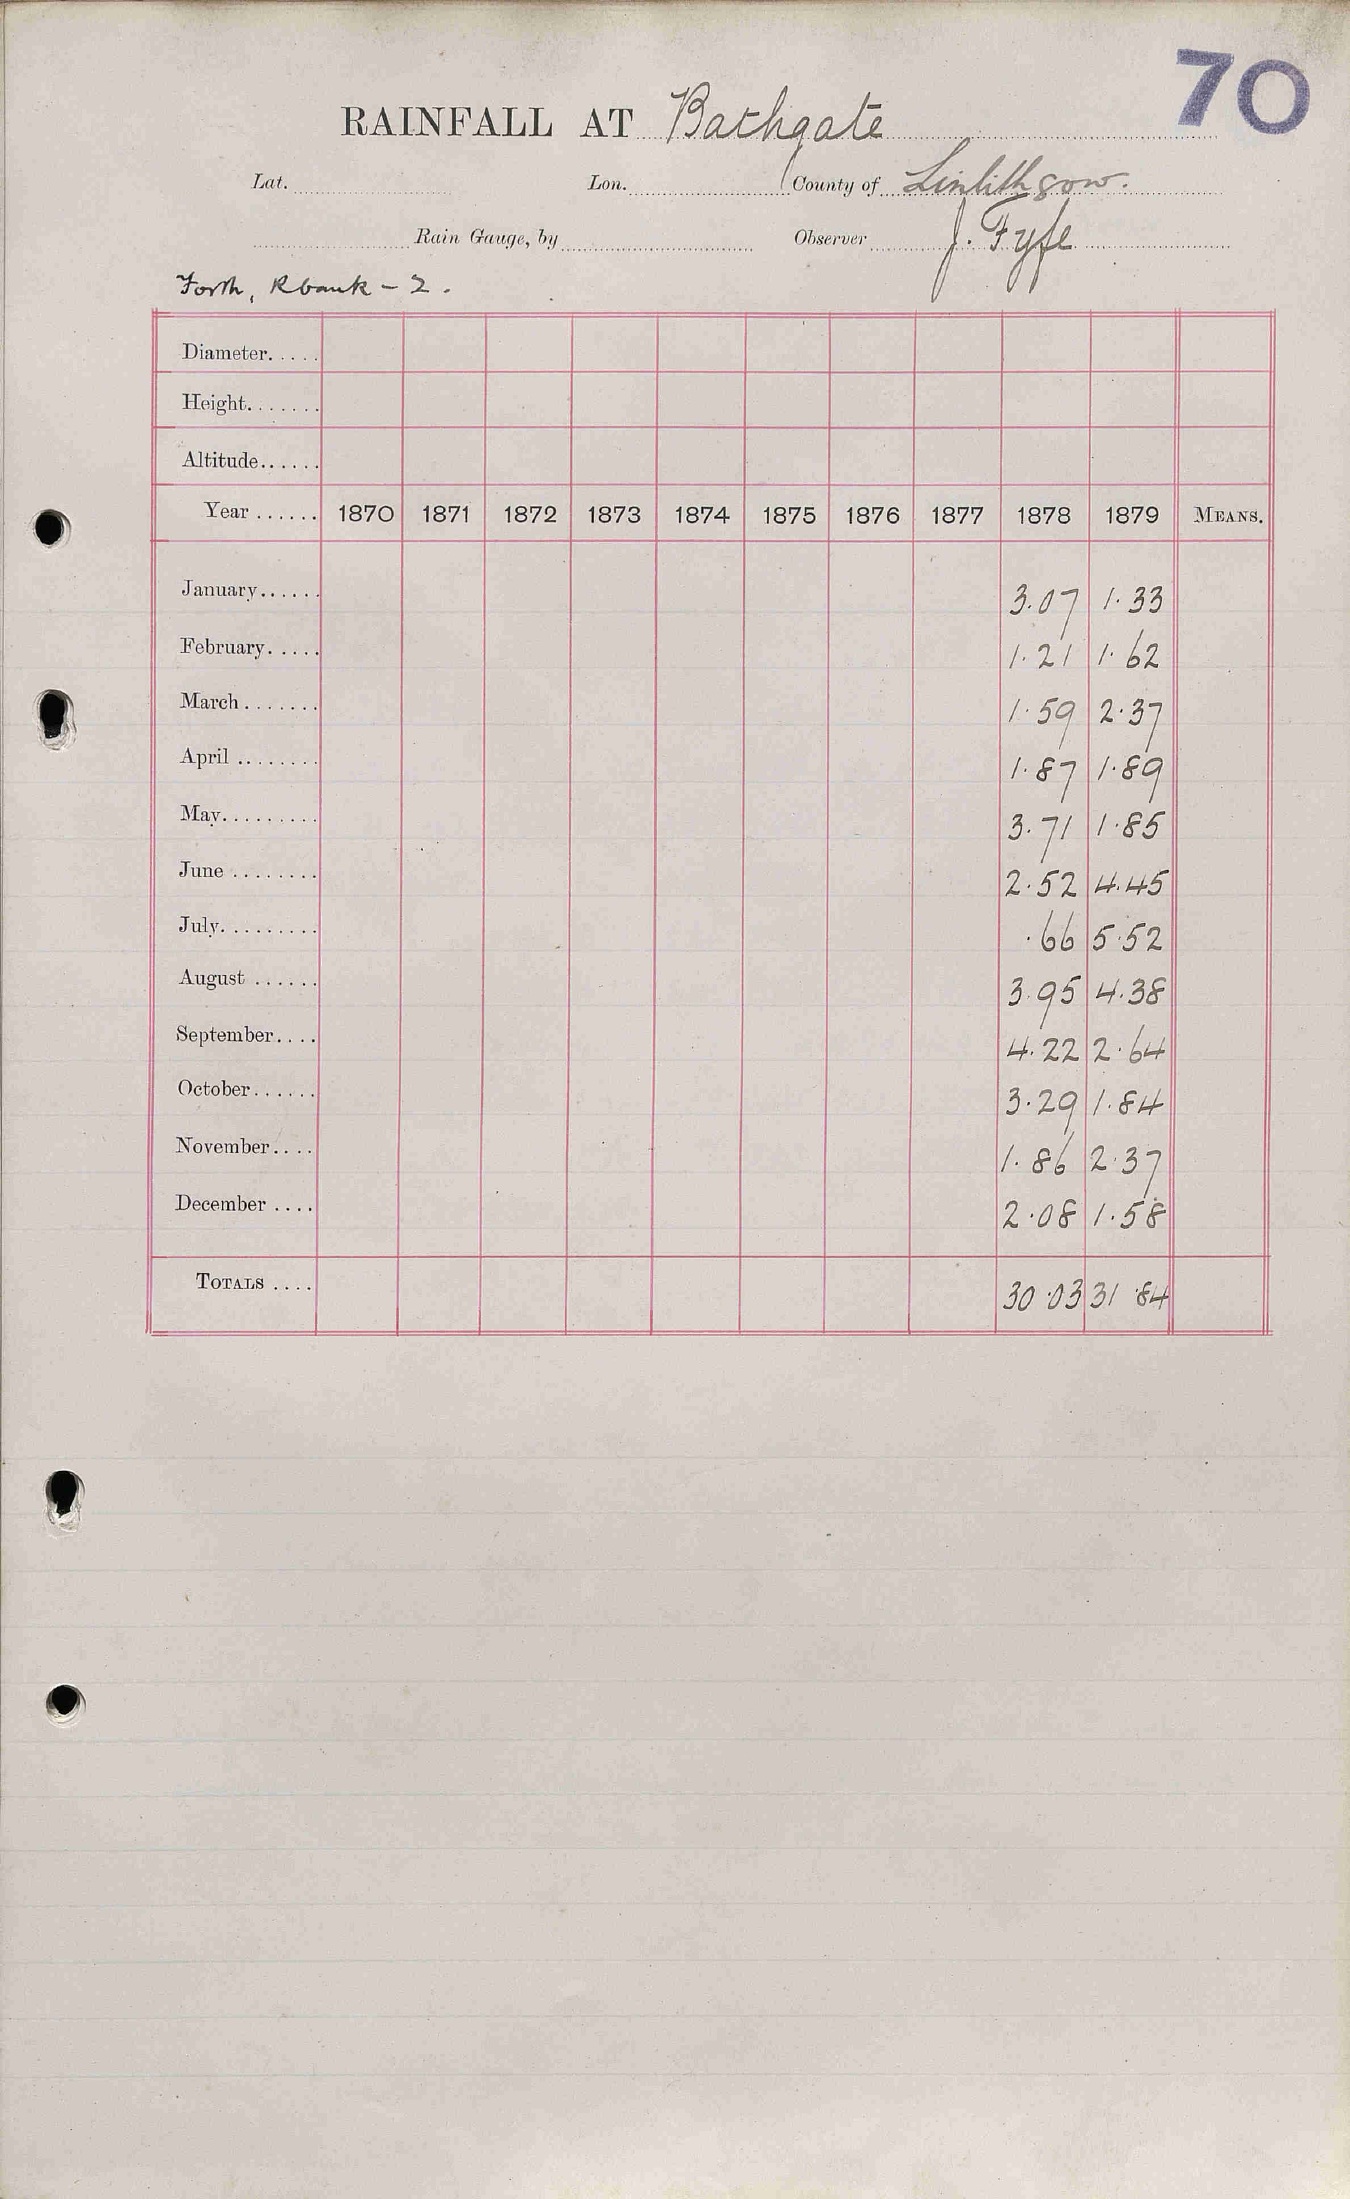 70
RAINFALL AT Bathgate
Lat. Lon. County of Linlithgow.
Rain Gauge, by Observer J. Fyfe
Forth, Rbank - 2.
Diameter.....
Height.......
Altitude......
Year ...... 1870 1871 1872 1873 1874 1875 1876 1877 1878 1879 MEANS.
January...... 3.07 1.33
February..... 1.21 1.62
March....... 1.59 2.37
April ........ 1.87 1.89
May......... 3.71 1.85
June ........ 2.52 4.45
July......... .66 5.52
August ...... 3.95 4.38
September.... 4.22 2.64
October...... 3.29 1.84
November.... 1.86 2.37
December .... 2.08 1.58
TOTALS .... 30.03 31.84